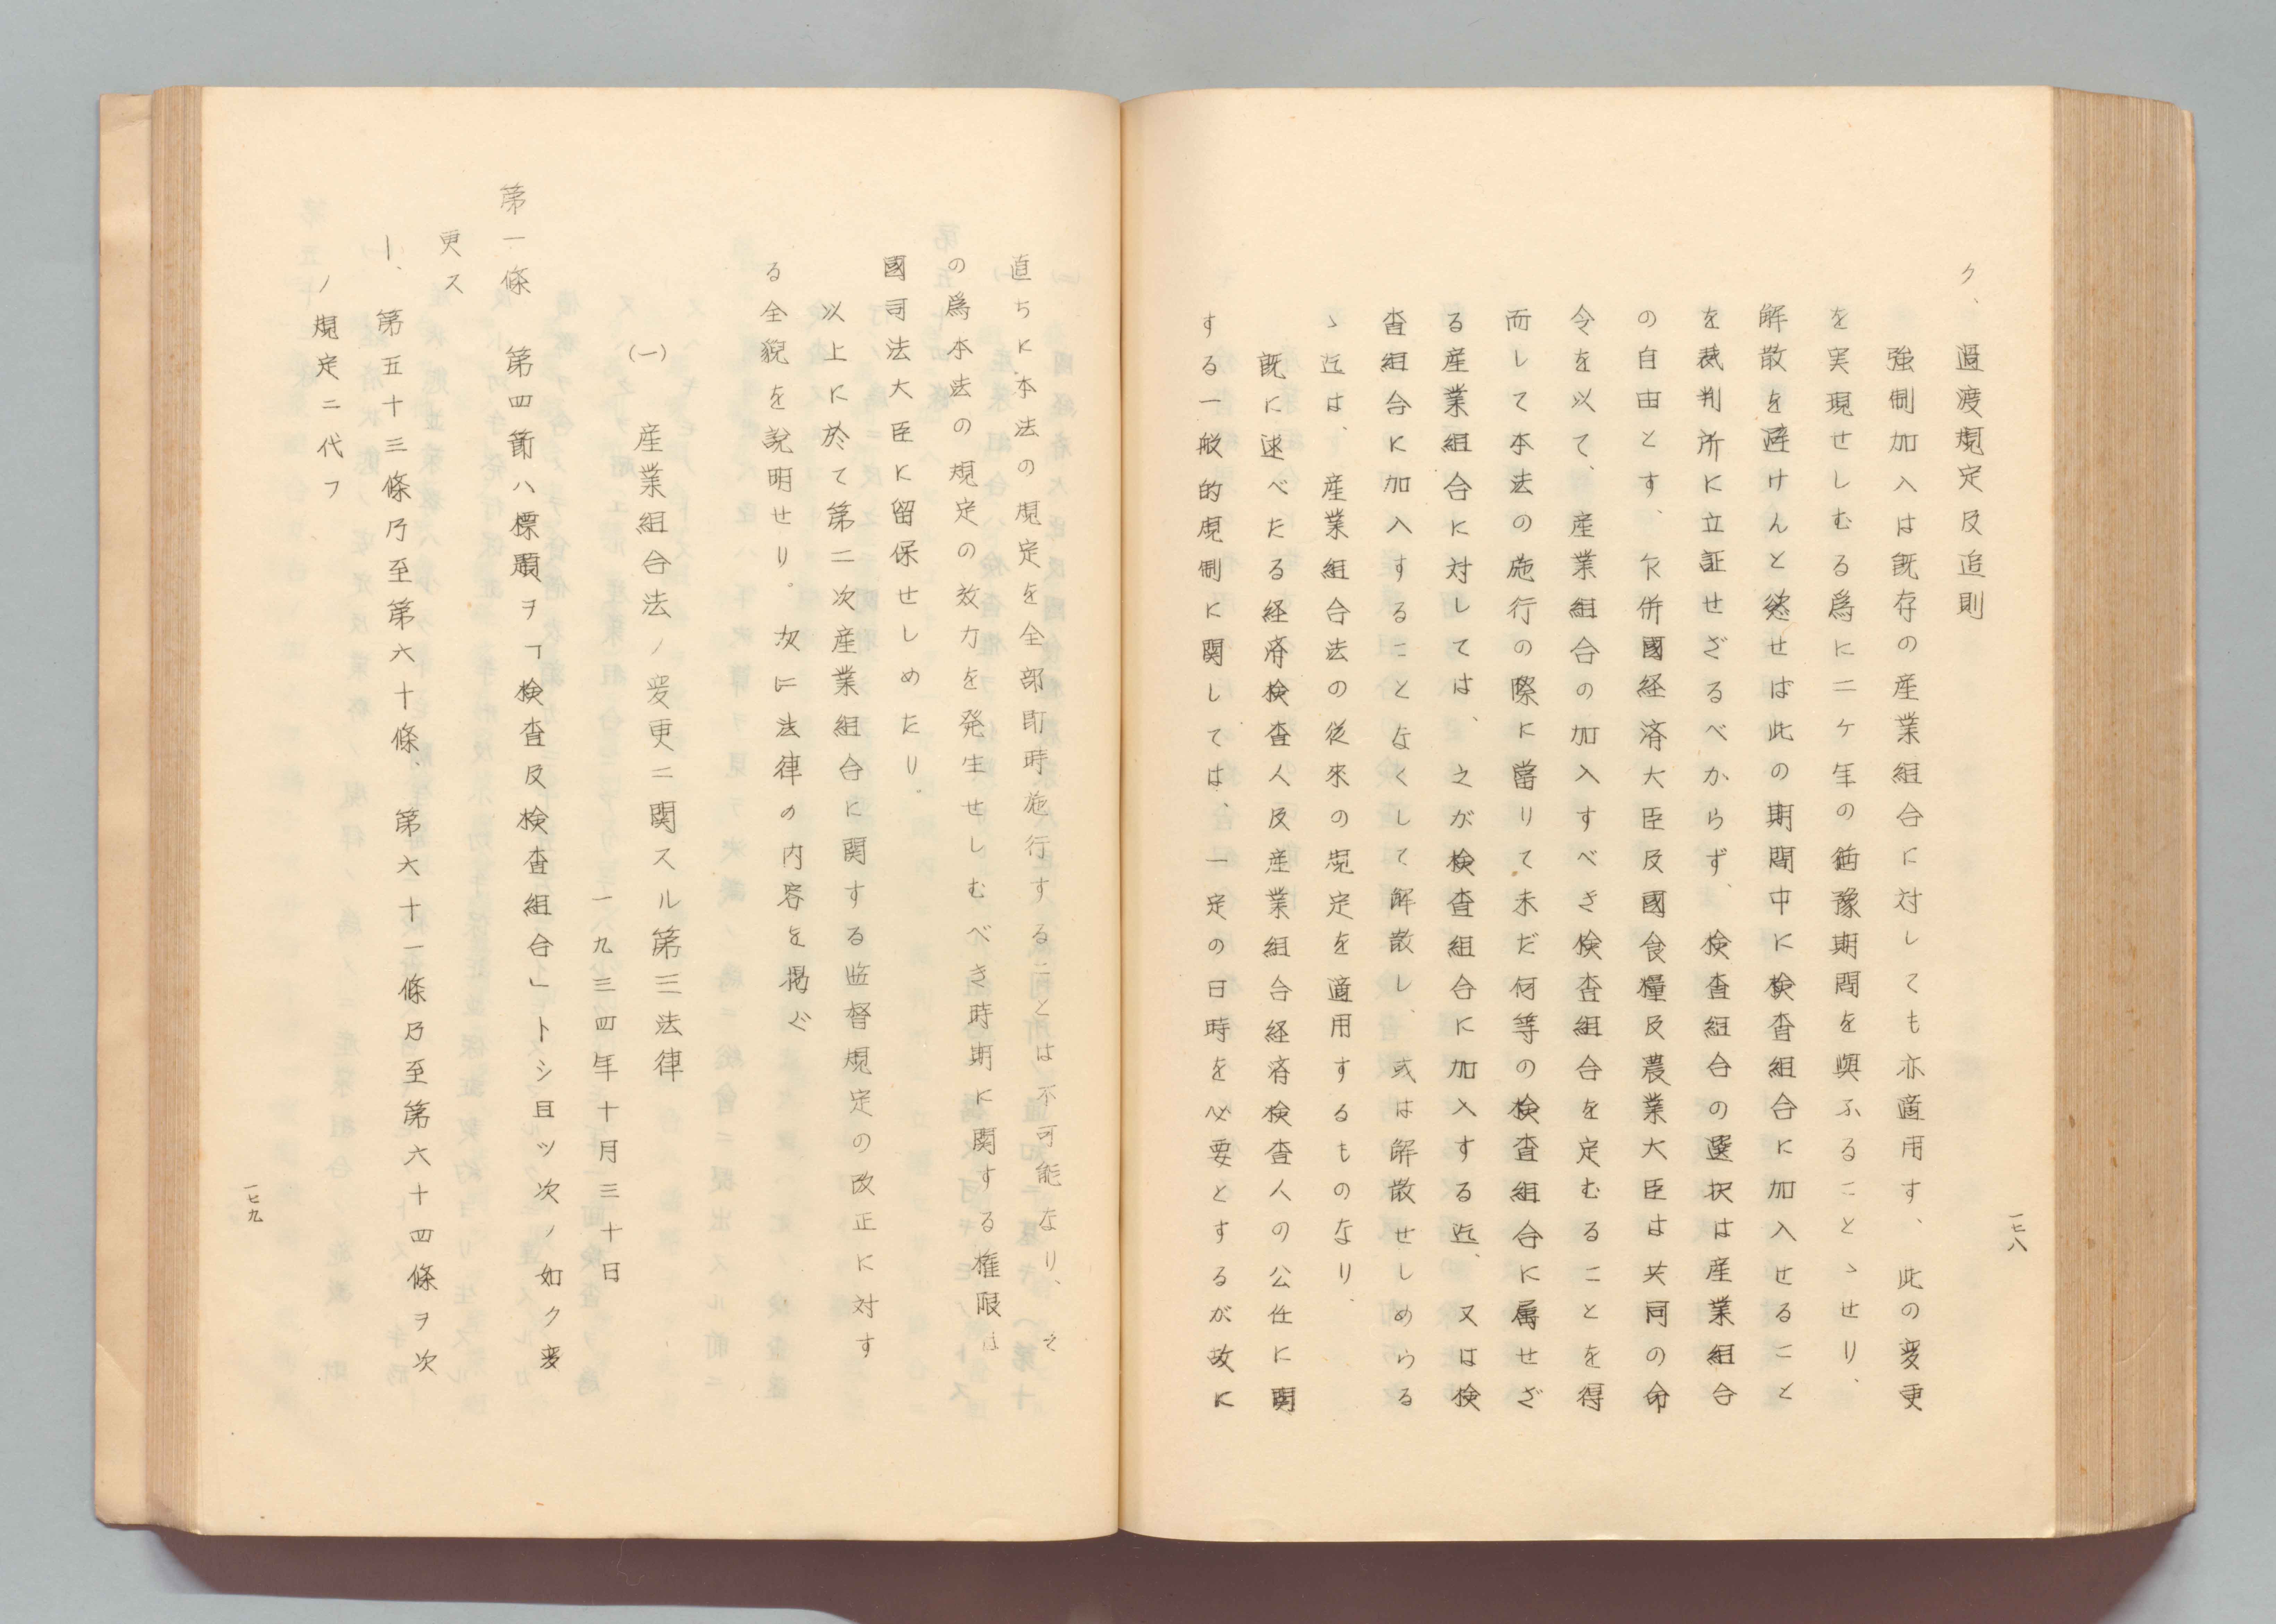 ク、過渡規定及追則
強制加入は既存の産業組合に対しても亦適用す、此の変更
を実現せしむる爲に二ケ年の猶豫期間を與ふることゝせり、
解散を避けんと慾せば此の期間中に検査組合に加入せること
を裁判所に立証せざるべからず、検査組合の選択は産業組合
の自由とす、欠併國経済大臣及國食糧及農業大臣は共同の命
令を以て、産業組合の加入すべき検査組合を定むることを得
而して本法の施行の際に當りて未だ何等の検査組合に属せざ
る産業組合に対しては、之が検査組合に加入する迄、又は検
査組合に加入することなくして解散し、或は解散せしめらる
ゝ迄は、産業組合法の従來の規定を適用するものなり、
既に述べたる経済検査人及産業組合経済検査人の公任に関
する一般的規制に関しては、一定の日時を必要とするが故に
一七八
直ちに本法の規定を全部即時施行することは不可能なり、そ
の爲本法の規定の効力を発生せしむべき時期に関する権限は
國司法大臣に留保せしめたり。
以上に於て第二次産業組合に関する監督規定の改正に対す
る全貌を説明せり。次に法律の内容を掲ぐ
(一) 産業組合法ノ変更ニ関スル第三法律
一九三四年十月三十日
第一條 第四節ハ標題ヲ「検査及検査組合」トシ且ツ次ノ如ク変
更ス
1、第五十三條乃至第六十條、第六十一條乃至第六十四條ヲ次
ノ規定ニ代フ
一七九